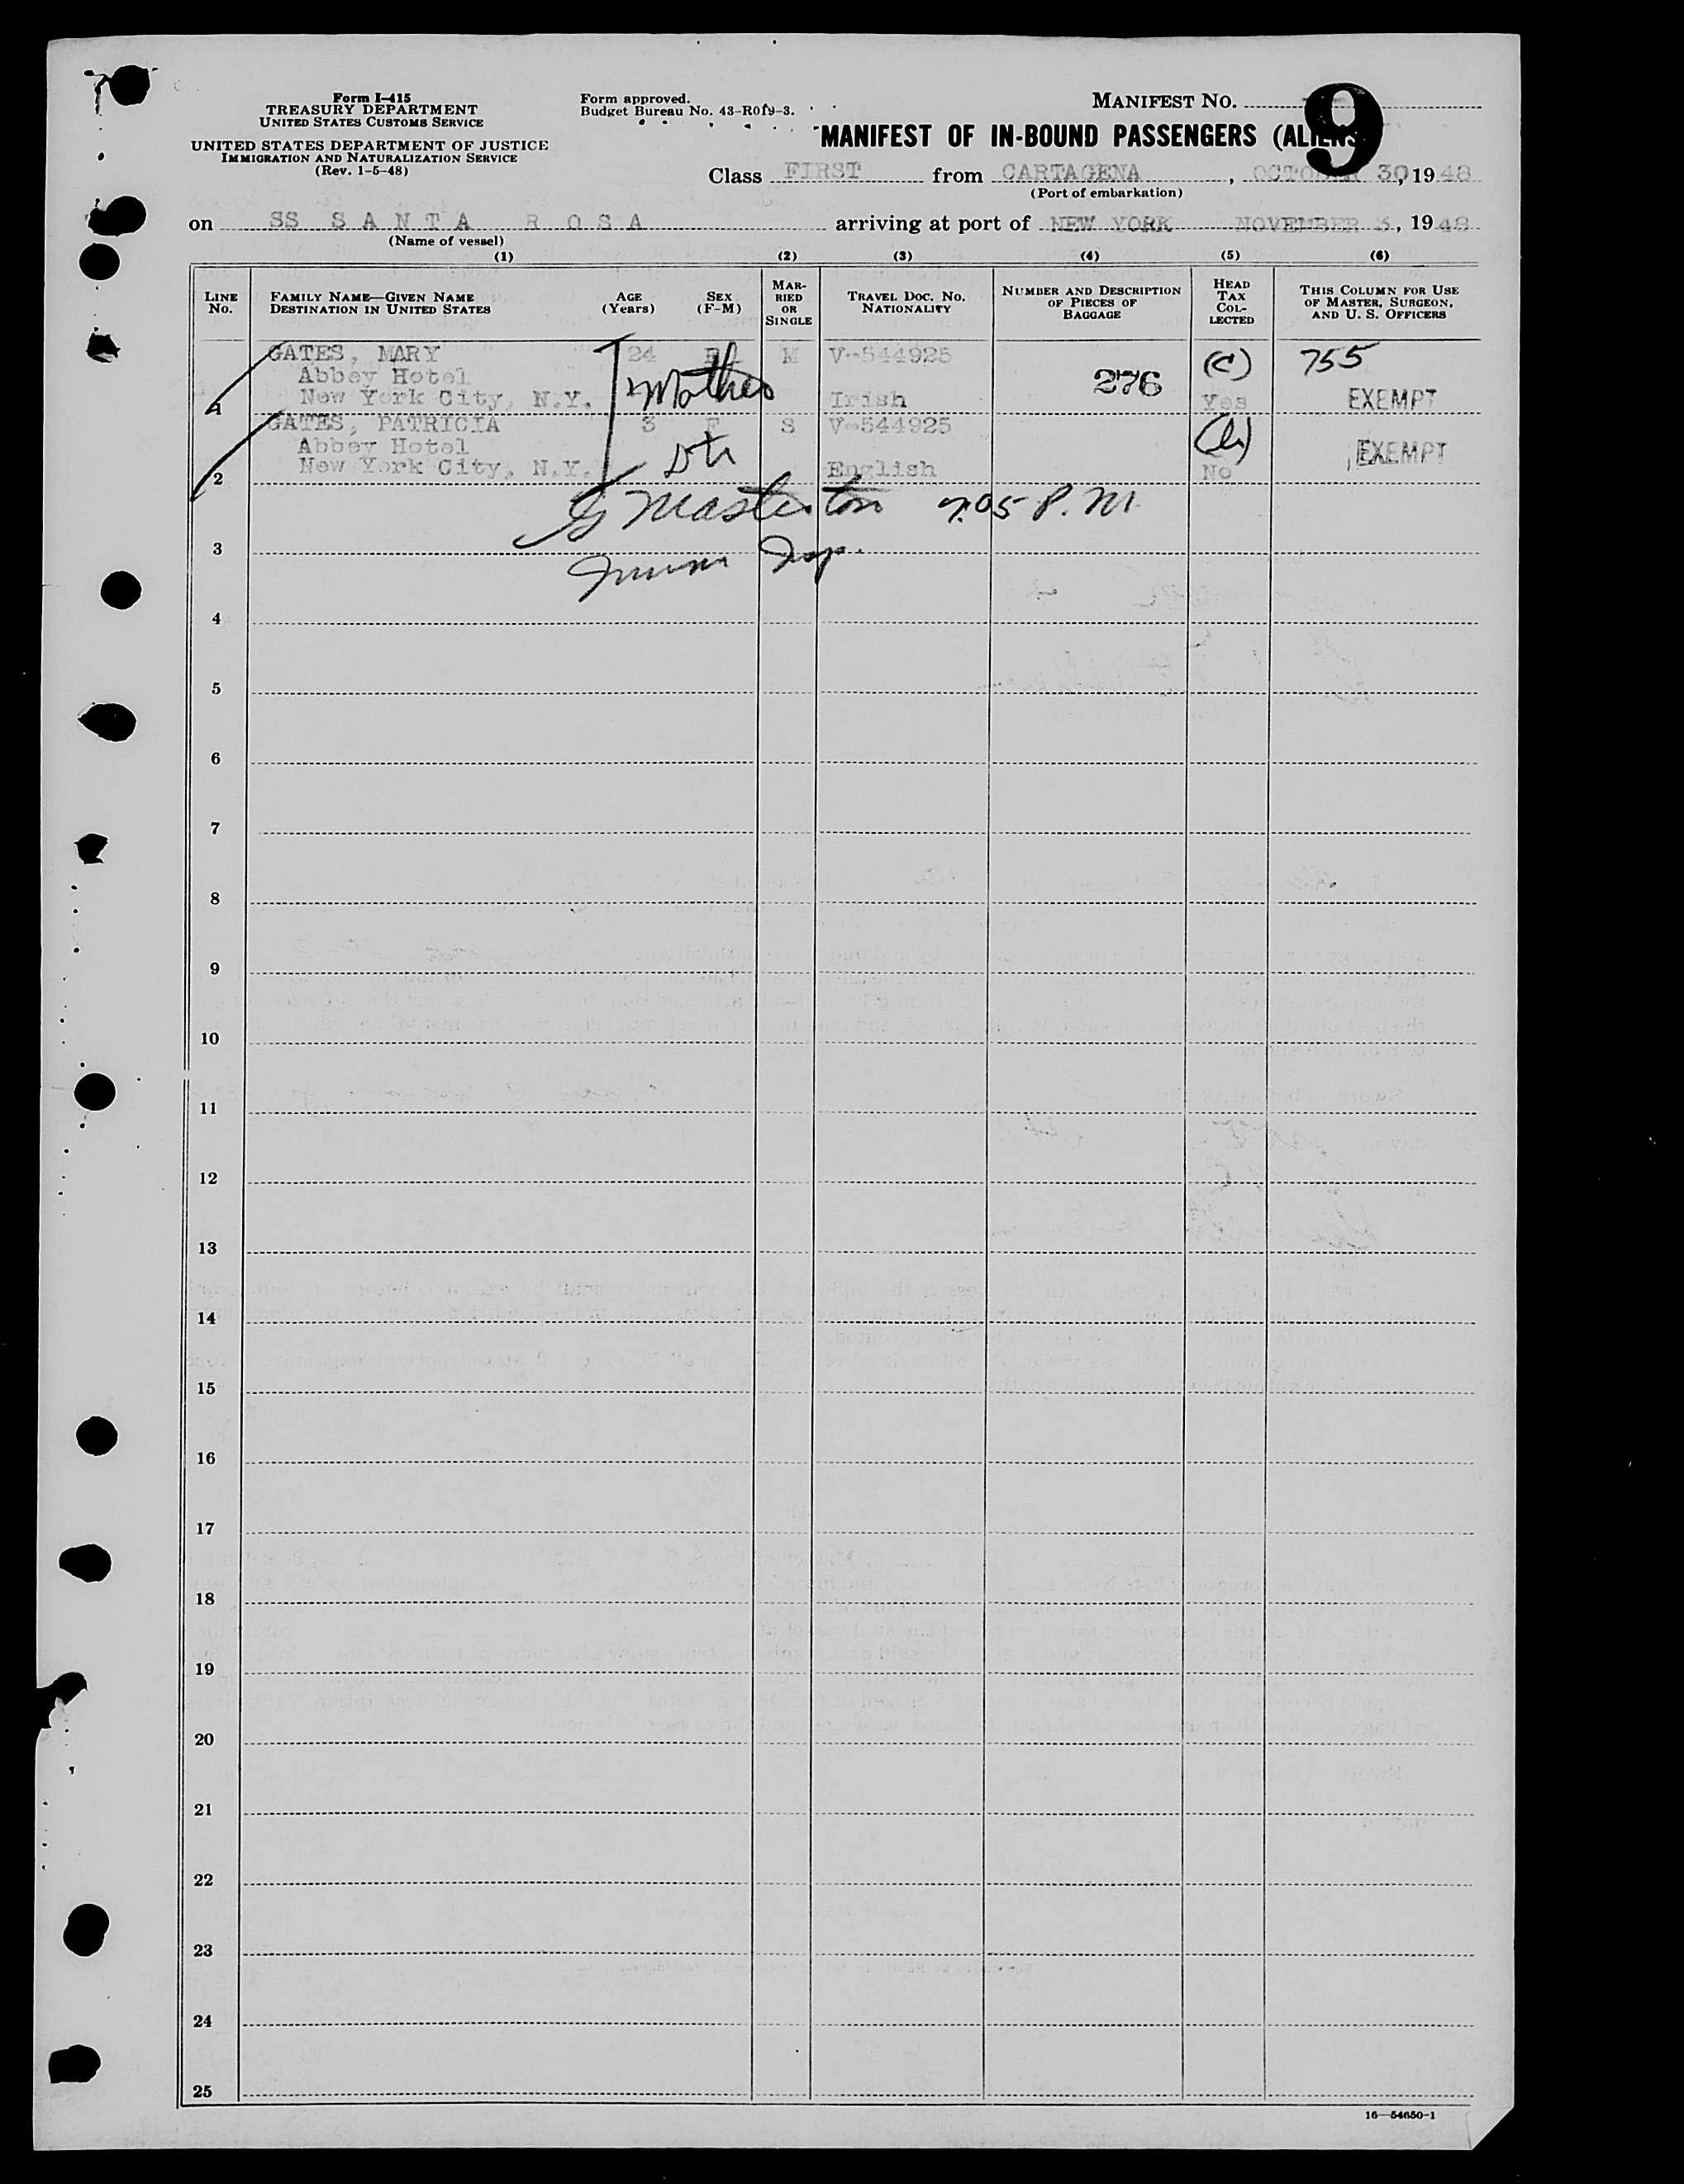 Form I-415
TREASURY DEPARTMENT
UNITED STATES CUSTOMS SERVICE
UNITED STATES DEPARTMENT OF JUSTICE
IMMIGRATION AND NATURALIZATION SERVICE
(Rev. 1-5-48)
Form approved.
Budget Bureau No. 43-R019-3.
MANIFEST NO. 9
MANIFEST OF IN-BOUND PASSENGERS (ALIENS
Class FIRST from CARTAGENA, OCTOBER 30, 1948
(Port of embarkation)
on SS SANTA ROSA arriving at port of NEW YORK NOVEMBER 3, 1948
(Name of vessel)
(1) (2) (3) (4) (5) (6)
LINE NO.
FAMILY NAME—GIVEN NAME
DESTINATION IN UNITED STATES
AGE (Years)
SEX (F-M)
MARRIED OR SINGLE
TRAVEL DOC. NO.
NATIONALITY
NUMBER AND DESCRIPTION OF PIECES OF BAGGAGE
HEAD TAX COLLECTED
THIS COLUMN FOR USE OF MASTER, SURGEON, AND U. S. OFFICERS
GATES, MARY 24 M V-544925 (c) 755
Abbey Hotel Mother 276
1 New York City, N.Y. Irish Yes EXEMPT
GATES, PATRICIA 3 F S V-544925
Abbey Hotel EXEMPT
2 New York City, N.Y. English No
G Masterton 7.05 P.M.
3
Immn Insp.
4
5
6
7
8
9
10
11
12
13
14
15
16
17
18
19
20
21
22
23
24
25
16—54650-1